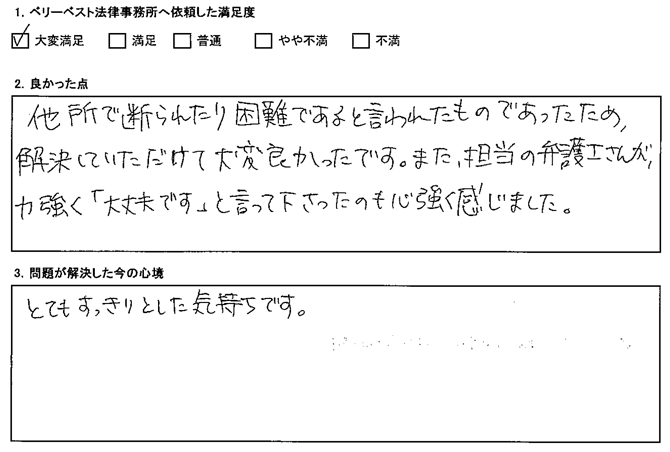 1. ベリーベスト法律事務所へ依頼した満足度
☑ 大変満足 □ 満足 □ 普通 □ やや不満 □ 不満
2. 良かった点
他所で断られたり困難であると言われたものであったため,
解決していただけて大変良かったです。また、担当の弁護士さんが,
力強く「大丈夫です」と言って下さったのも心強く感じました。
3. 問題が解決した今の心境
とてもすっきりとした気持ちです。